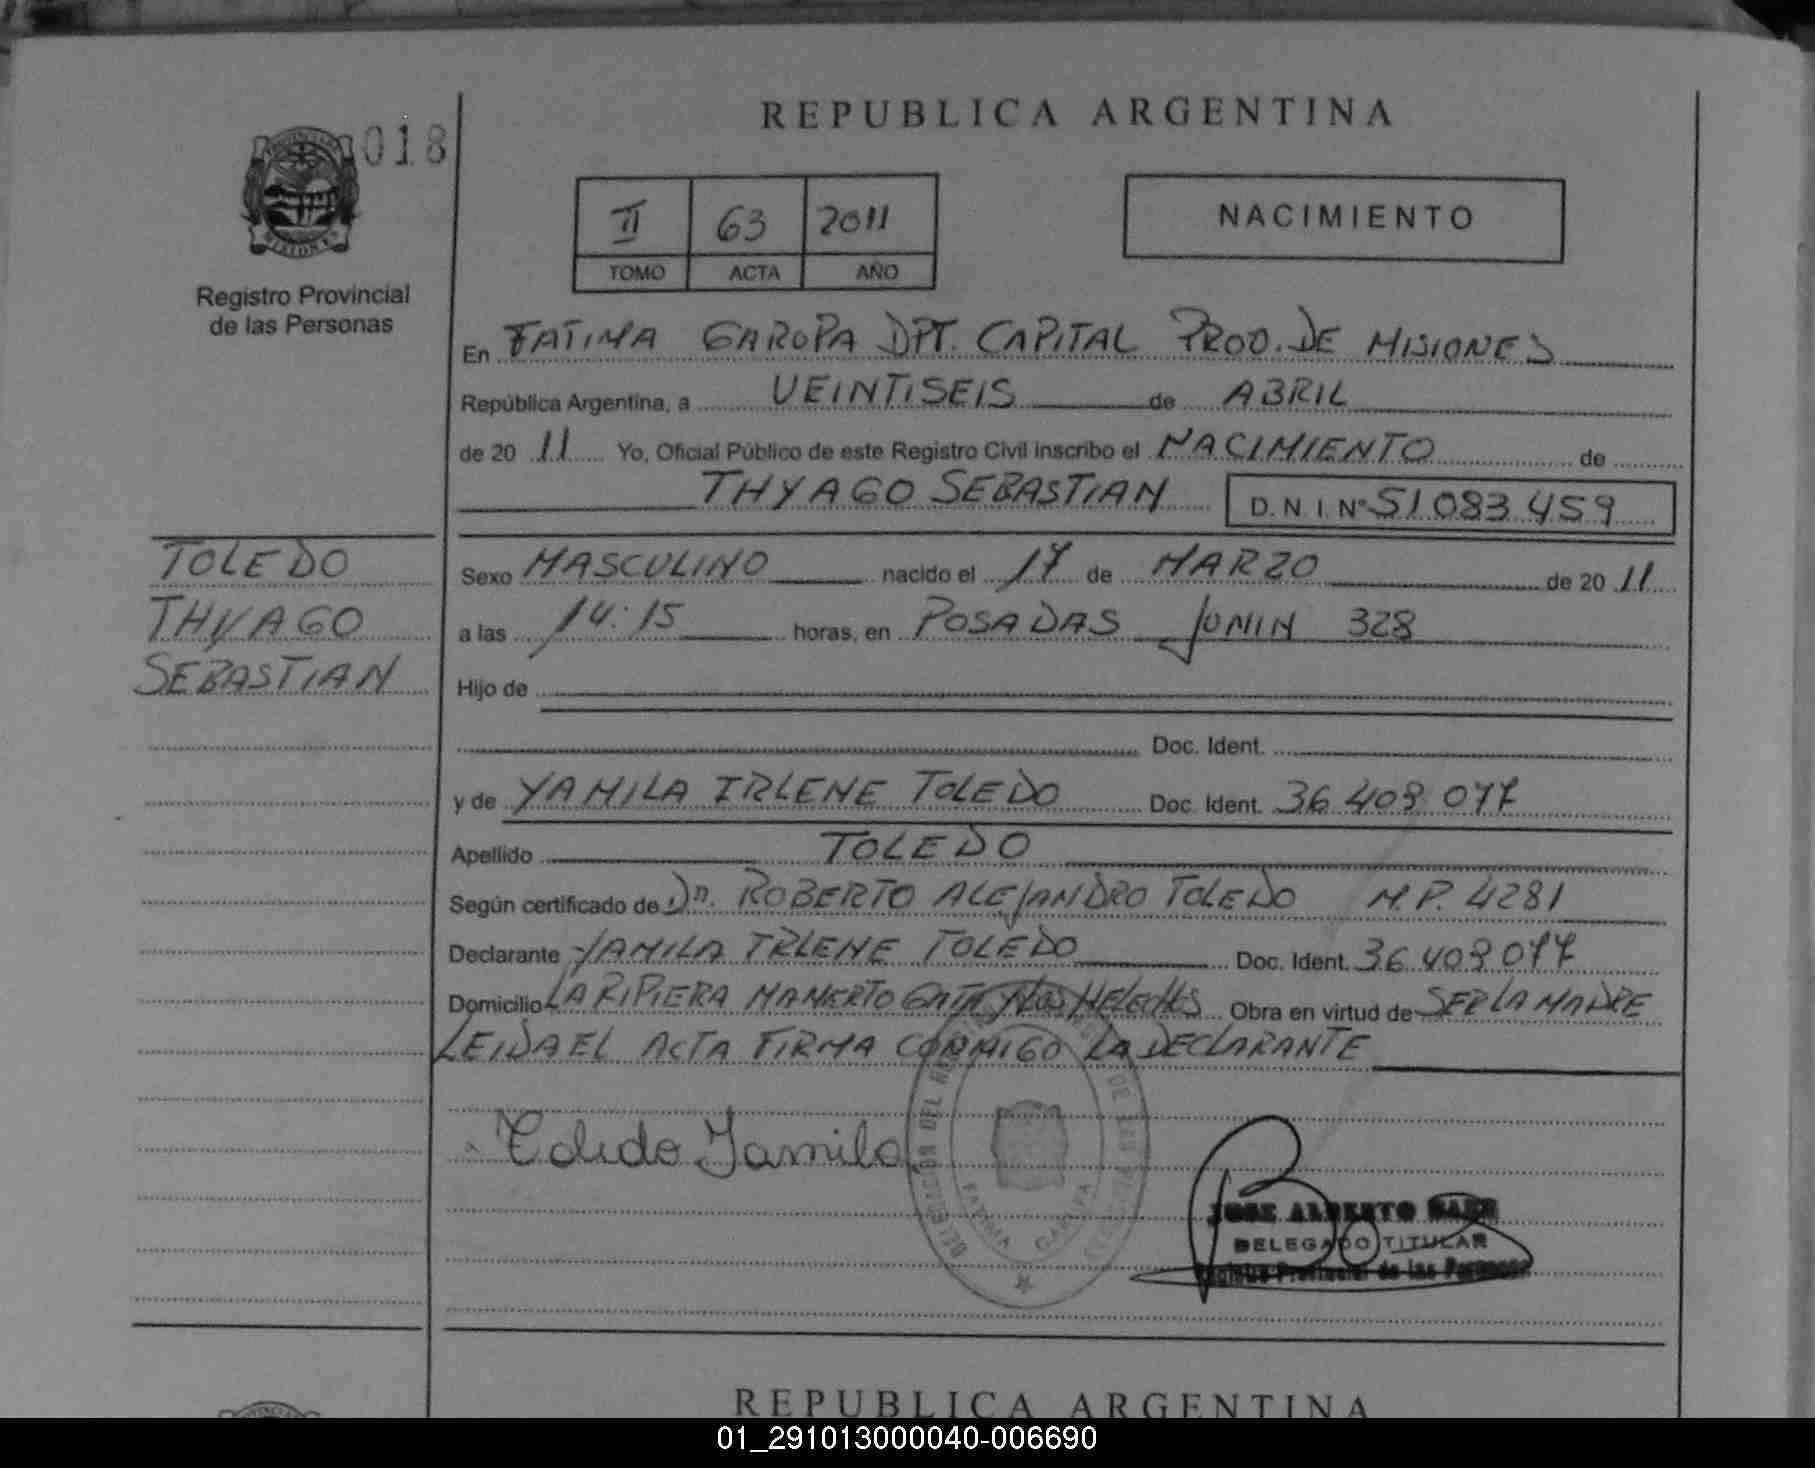 REPUBLICA ARGENTINA
018
MISIONES
Registro Provincial
de las Personas
II 63 2011
TOMO ACTA AÑO
NACIMIENTO
En FATIMA GARUPA DPT. CAPITAL PROV. DE MISIONES
República Argentina, a VEINTISEIS de ABRIL
de 20 11 Yo, Oficial Público de este Registro Civil inscribo el NACIMIENTO de
THYAGO SEBASTIAN D.N.I.Nº 51 083 459
TOLEDO
THYAGO
SEBASTIAN
Sexo MASCULINO nacido el 17 de MARZO de 20 11
a las 14:15 horas, en POSADAS JUNIN 328
Hijo de
Doc. Ident.
y de YAMILA IRLENE TOLEDO Doc. Ident. 36 409 077
Apellido TOLEDO
Según certificado de Dn. ROBERTO ALEJANDRO TOLEDO M.P. 4281
Declarante YAMILA IRLENE TOLEDO Doc. Ident. 36 409 077
Domicilio LA RIPIERA MAMERTO Y LOS HELECHOS Obra en virtud de SER LA MADRE
LEIDA EL ACTA FIRMA CONMIGO LA DECLARANTE
Toledo Yamila
DELEGACION DEL
FATIMA GARUPA
JOSE ALBERTO
DELEGADO TITULAR
Registro Provincial de las Personas
REPUBLICA ARGENTINA
01_291013000040-006690